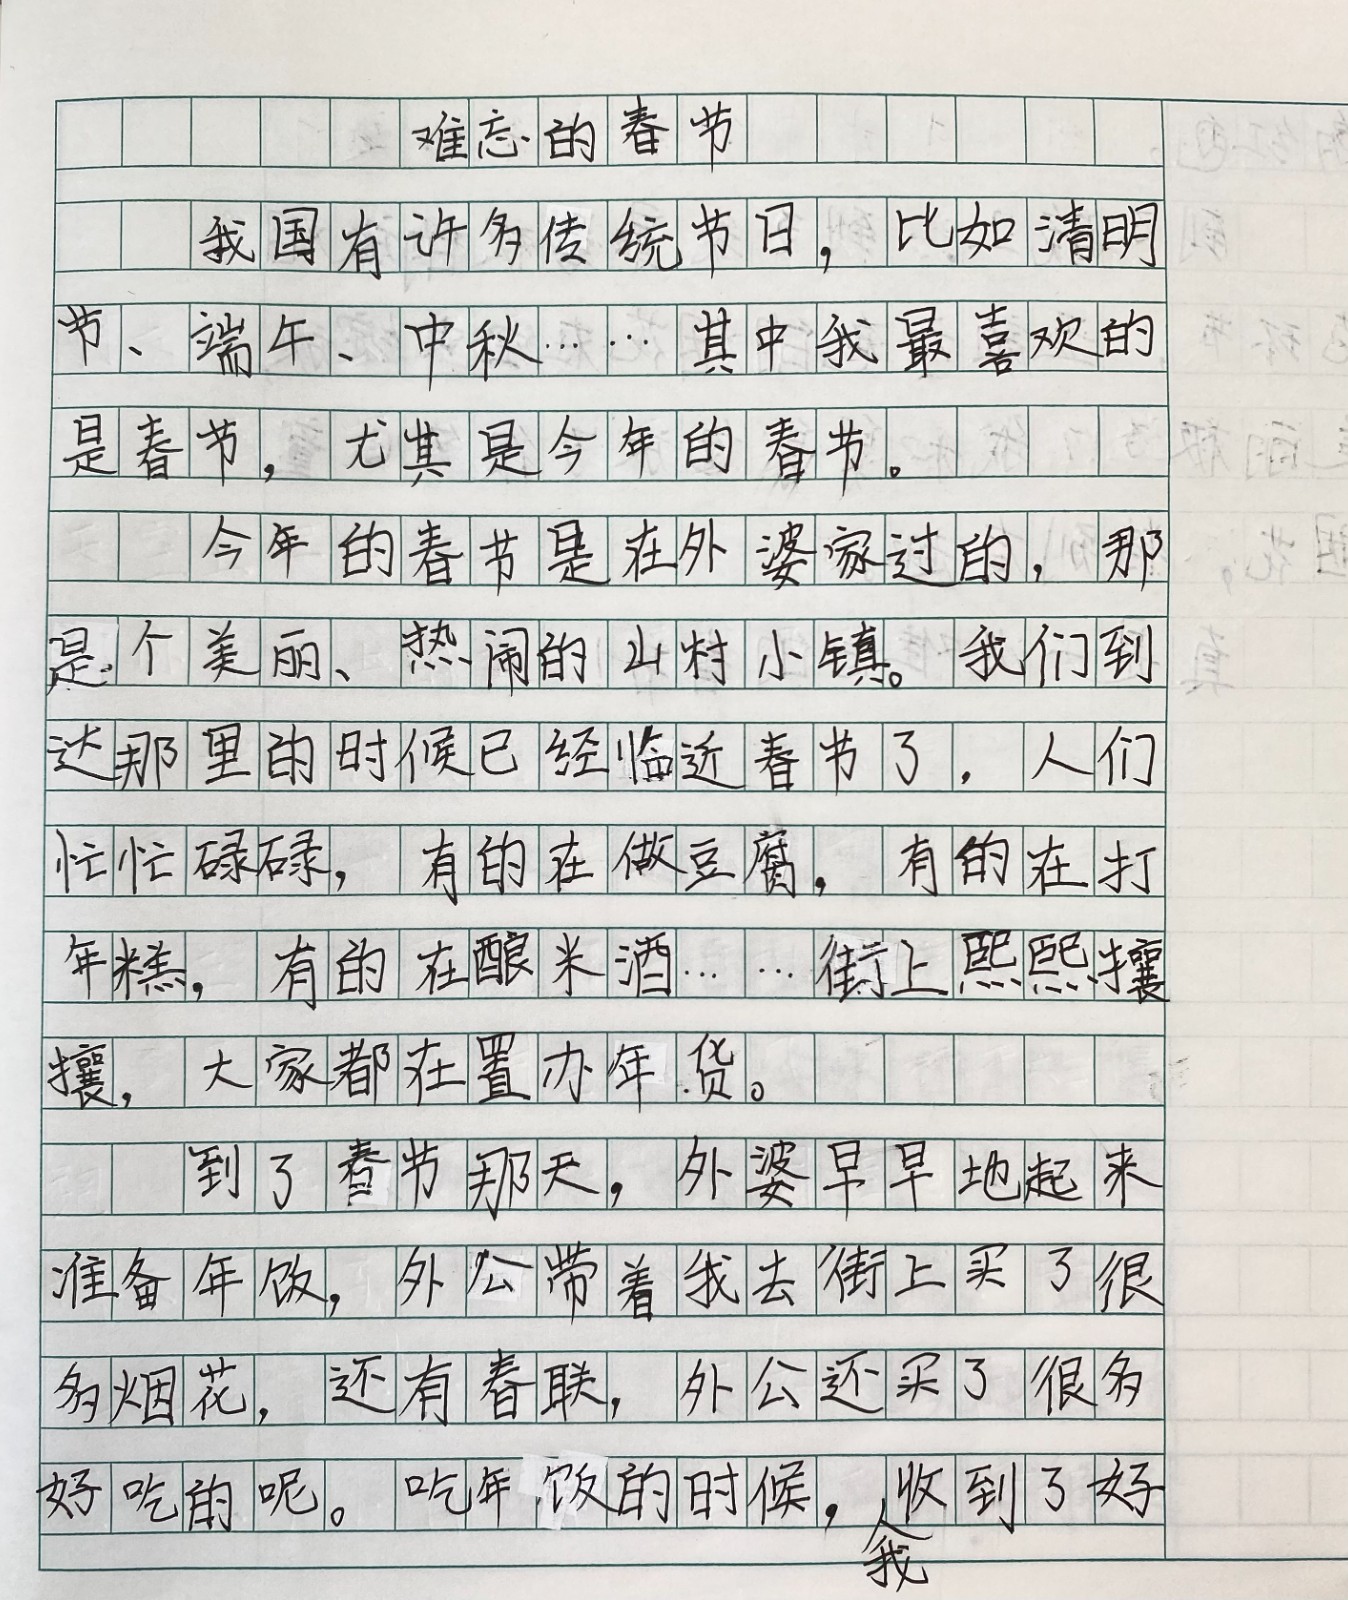 难忘的春节
我国有许多传统节日，比如清明
节、端午、中秋……其中我最喜欢的
是春节，尤其是今年的春节。
今年的春节是在外婆家过的，那
是个美丽、热闹的山村小镇。我们到
达那里的时候已经临近春节了，人们
忙忙碌碌，有的在做豆腐，有的在打
年糕，有的在酿米酒……街上熙熙攘
攘，大家都在置办年货。
到了春节那天，外婆早早地起来
准备年饭，外公带着我去街上买了很
多烟花，还有春联，外公还买了很多
好吃的呢。吃年饭的时候，我收到了好